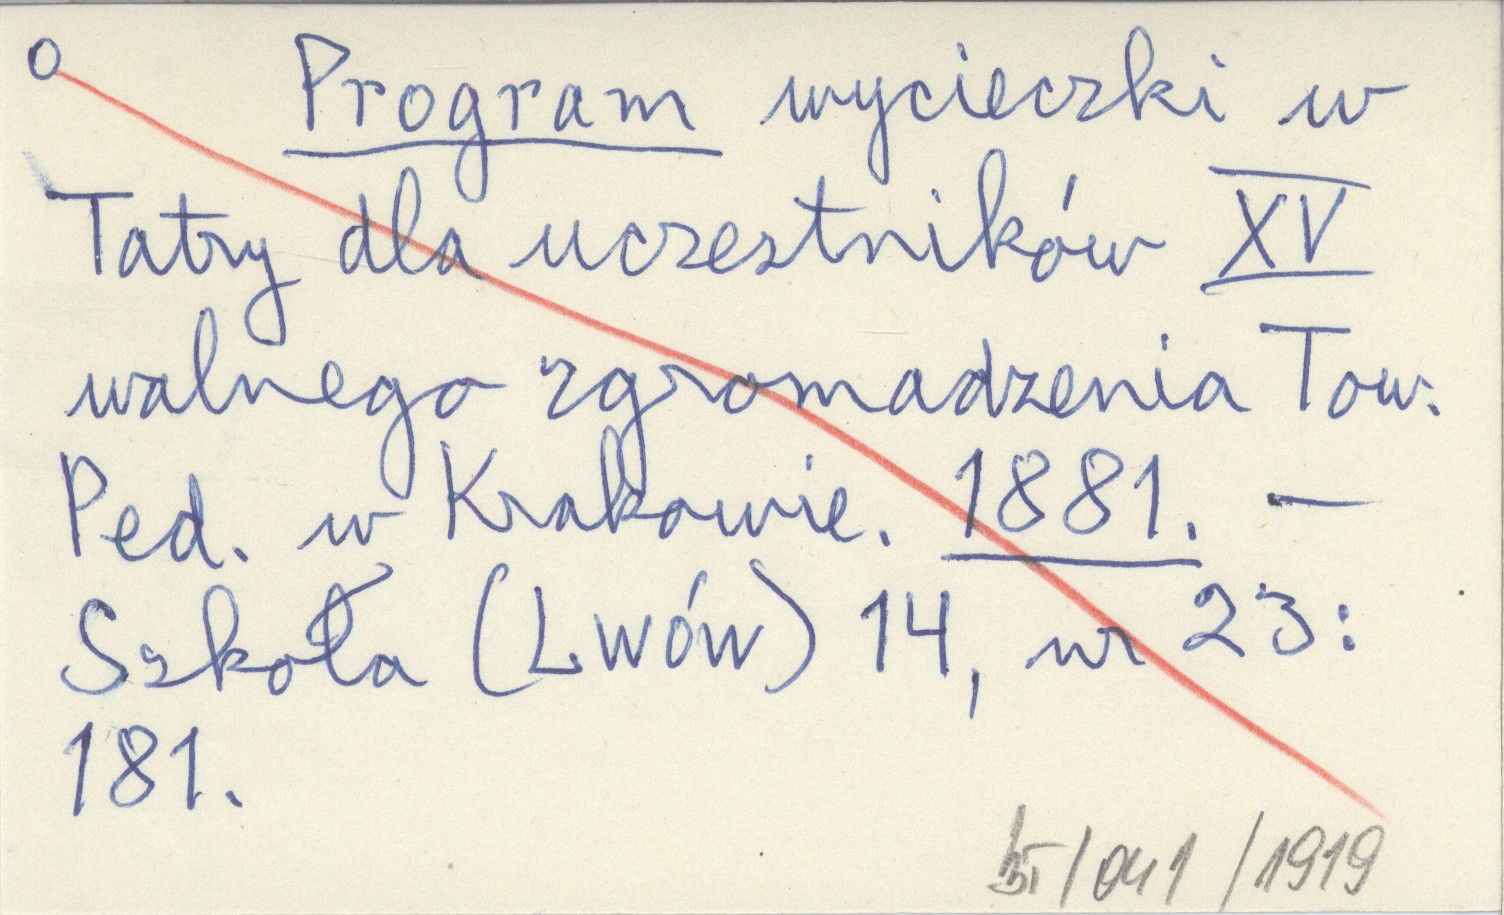 o Program wycieczki w
Tatry dla uczestników XV
walnego zgromadzenia Tow.
Ped. w Krakowie. 1881. —
Szkoła (Lwów) 14, nr 23:
181.
/041/1919